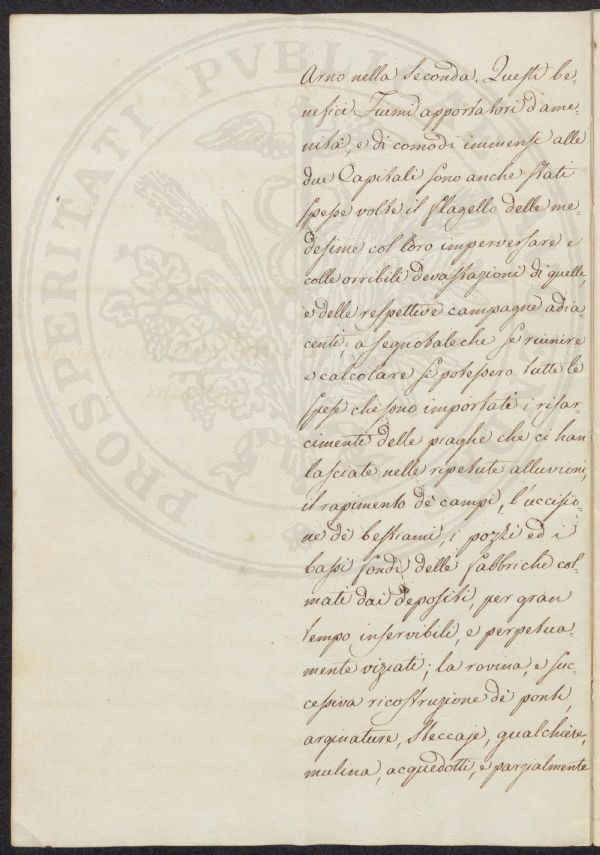 Arno nella Seconda. Questi be=
nefici Fiumi apportatori d'ame=
nità, e di comodi immensi alle
due Capitali sono anche stati
spesse volte il flagello delle me=
desime col loro imperversare e
colle orribili devastazioni di quelle,
e delle respettive campagne adia
centi, a segno tale che se riunire
e calcolare si potessero tutte le
spese che sono importate i risar=
cimenti delle piaghe che ci han
lasciate nelle ripetute alluvioni,
il rapimento de' campi, l'uccisio=
ne de' bestiami, i pozzi ed i
bassi fondi delle fabbriche col=
mati dai depositi, per gran
tempo inservibili, e perpetua=
mente viziati; la rovina, e suc=
cessiva ricostruzione de' ponti,
arginature, steccaje, qualchiere,
mulina, acquedotti, e parzialmente
PROSPERITATI PVBLICAE